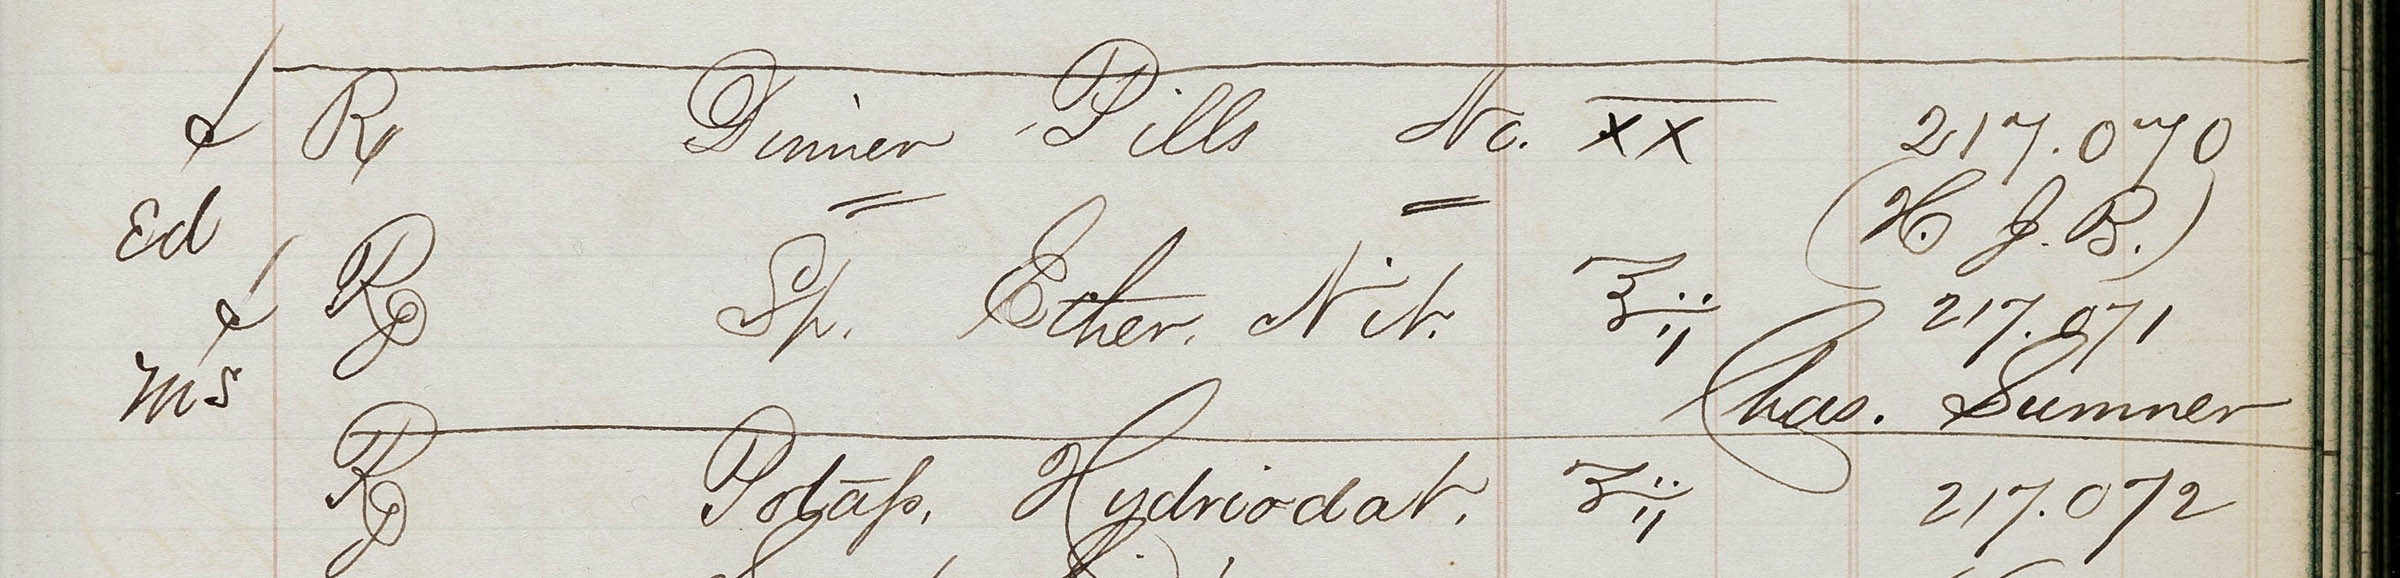 ℞ Dinner Pills No. XX 217.070
Ed (H. J. B.)
℞ Sp. Ether. Nit. ʒij 217.071
MS Chas. Sumner
℞ Potass. Hydriodat. ʒij 217.072